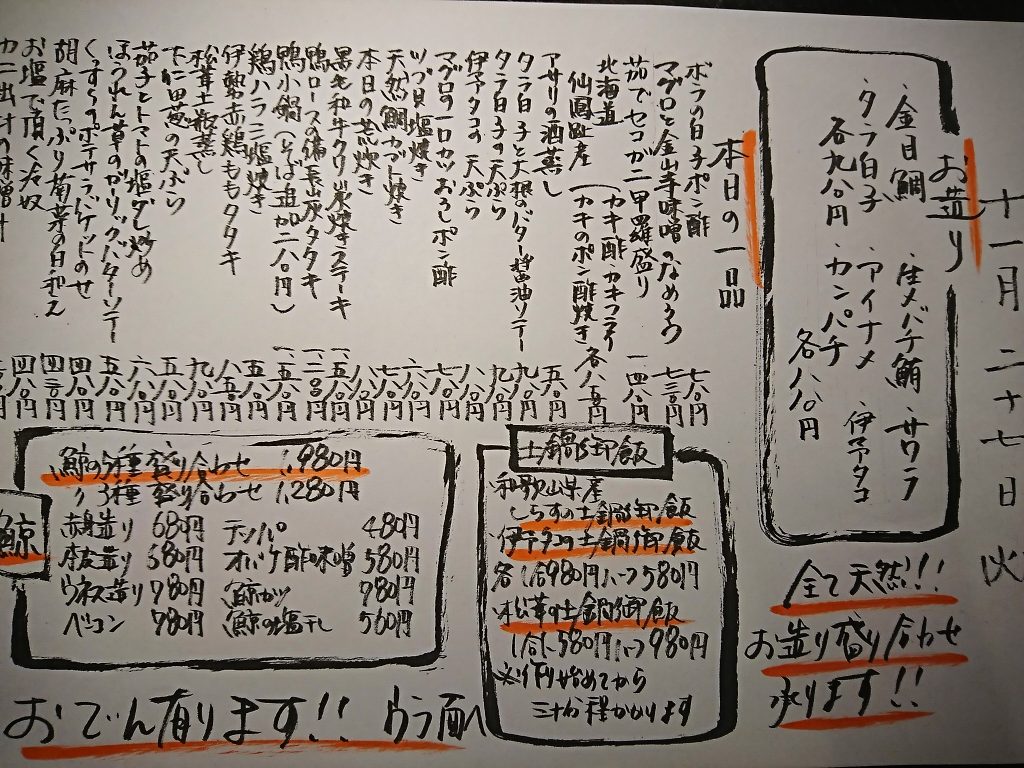 十一月二十七日 火
お造り
・金目鯛 ・生メバチ鮪 ・サワラ
・タラ白子 ・アイナメ ・伊予タコ
各九八〇円 ・カンパチ
各八八〇円
全て天然!!!
お造り盛り合わせ
承ります!!
本日の一品
ボラの白子ポン酢 七八〇円
マグロと金山寺味噌のなめろう 七三〇円
茹でセコガニ甲羅盛り 一、四八〇円
北海道
仙鳳趾産 (カキ酢 カキフライ
カキのポン酢焼き 各八五〇円
アサリの酒蒸し 五八〇円
タラ白子と大根のバター醤油ソテー 九八〇円
タラ白子の天ぷら 九八〇円
伊予タコの天ぷら 八八〇円
マグロの一口カツおろしポン酢 七八〇円
ツブ貝塩焼き 六八〇円
天然鯛カブト焼き 七八〇円
本日の荒炊き 八八〇円
黒毛和牛クリ炭焼きステーキ 一、五八〇円
鴨ロースの備長炭タタキ 一、二八〇円
鴨小鍋(そば追加二八〇円) 一、五八〇円
鶏ハラミ塩焼き 五八〇円
伊勢赤鶏ももタタキ 八五〇円
松茸土瓶蒸し 九八〇円
下仁田葱の天ぷら 五八〇円
茄子とトマトの塩ダレ炒め 六八〇円
ほうれん草のガーリックバターソテー 五八〇円
くんすらのポテサラバゲットのせ 四八〇円
胡麻たっぷり菊菜の白和え 四三〇円
お塩で頂く冷奴 四八〇円
カニ出汁の味噌汁
土鍋御飯
・和歌山県産
しらすの土鍋御飯
・伊予タコの土鍋御飯
各1合980円ハーフ580円
・松茸の土鍋御飯
1合1580円ハーフ980円
※作り始めてから
三十分程かかります
鯨
鯨の5種盛り合わせ 1,980円
〃3種盛り合わせ 1,280円
赤身造り 680円 テッパ 480円
本皮造り 580円 オバケ酢味噌 580円
ウネス造り 780円 鯨カツ 980円
ベーコン 980円 鯨の塩干し 560円
おでん有ります!! ウラ面へ